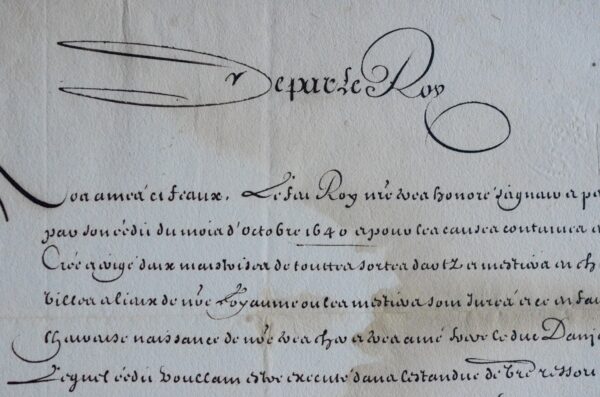 De par le Roy
Nos amés et feaux, Le feu Roy nre tres honoré signeur a
par son eédit du mois d'octobre 1640 et pour les causes contenues
Créé erigé deux maistrises de touttes sortes d'artz et mestiers en
villes et lieux de nre Royaume ou les mestiers sont Jurés et ce en
L'heureuse naissance de nre tres cher et tres amé frere le duc Danjo
Lequel eédit voullans estre executé dans l'estandue de vre ressor